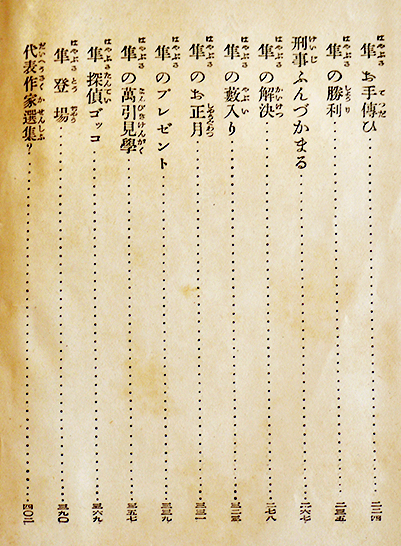 隼お手傳ひ……二二四
隼の勝利……二三五
刑事ふんづかまる……二六七
隼の解決……二七八
隼の藪入り……三二三
隼のお正月……三三一
隼のプレゼント……三三九
隼の萬引見學……三五七
隼探偵ゴッコ……三六九
隼登場……三九〇
代表作家選集？……四〇二